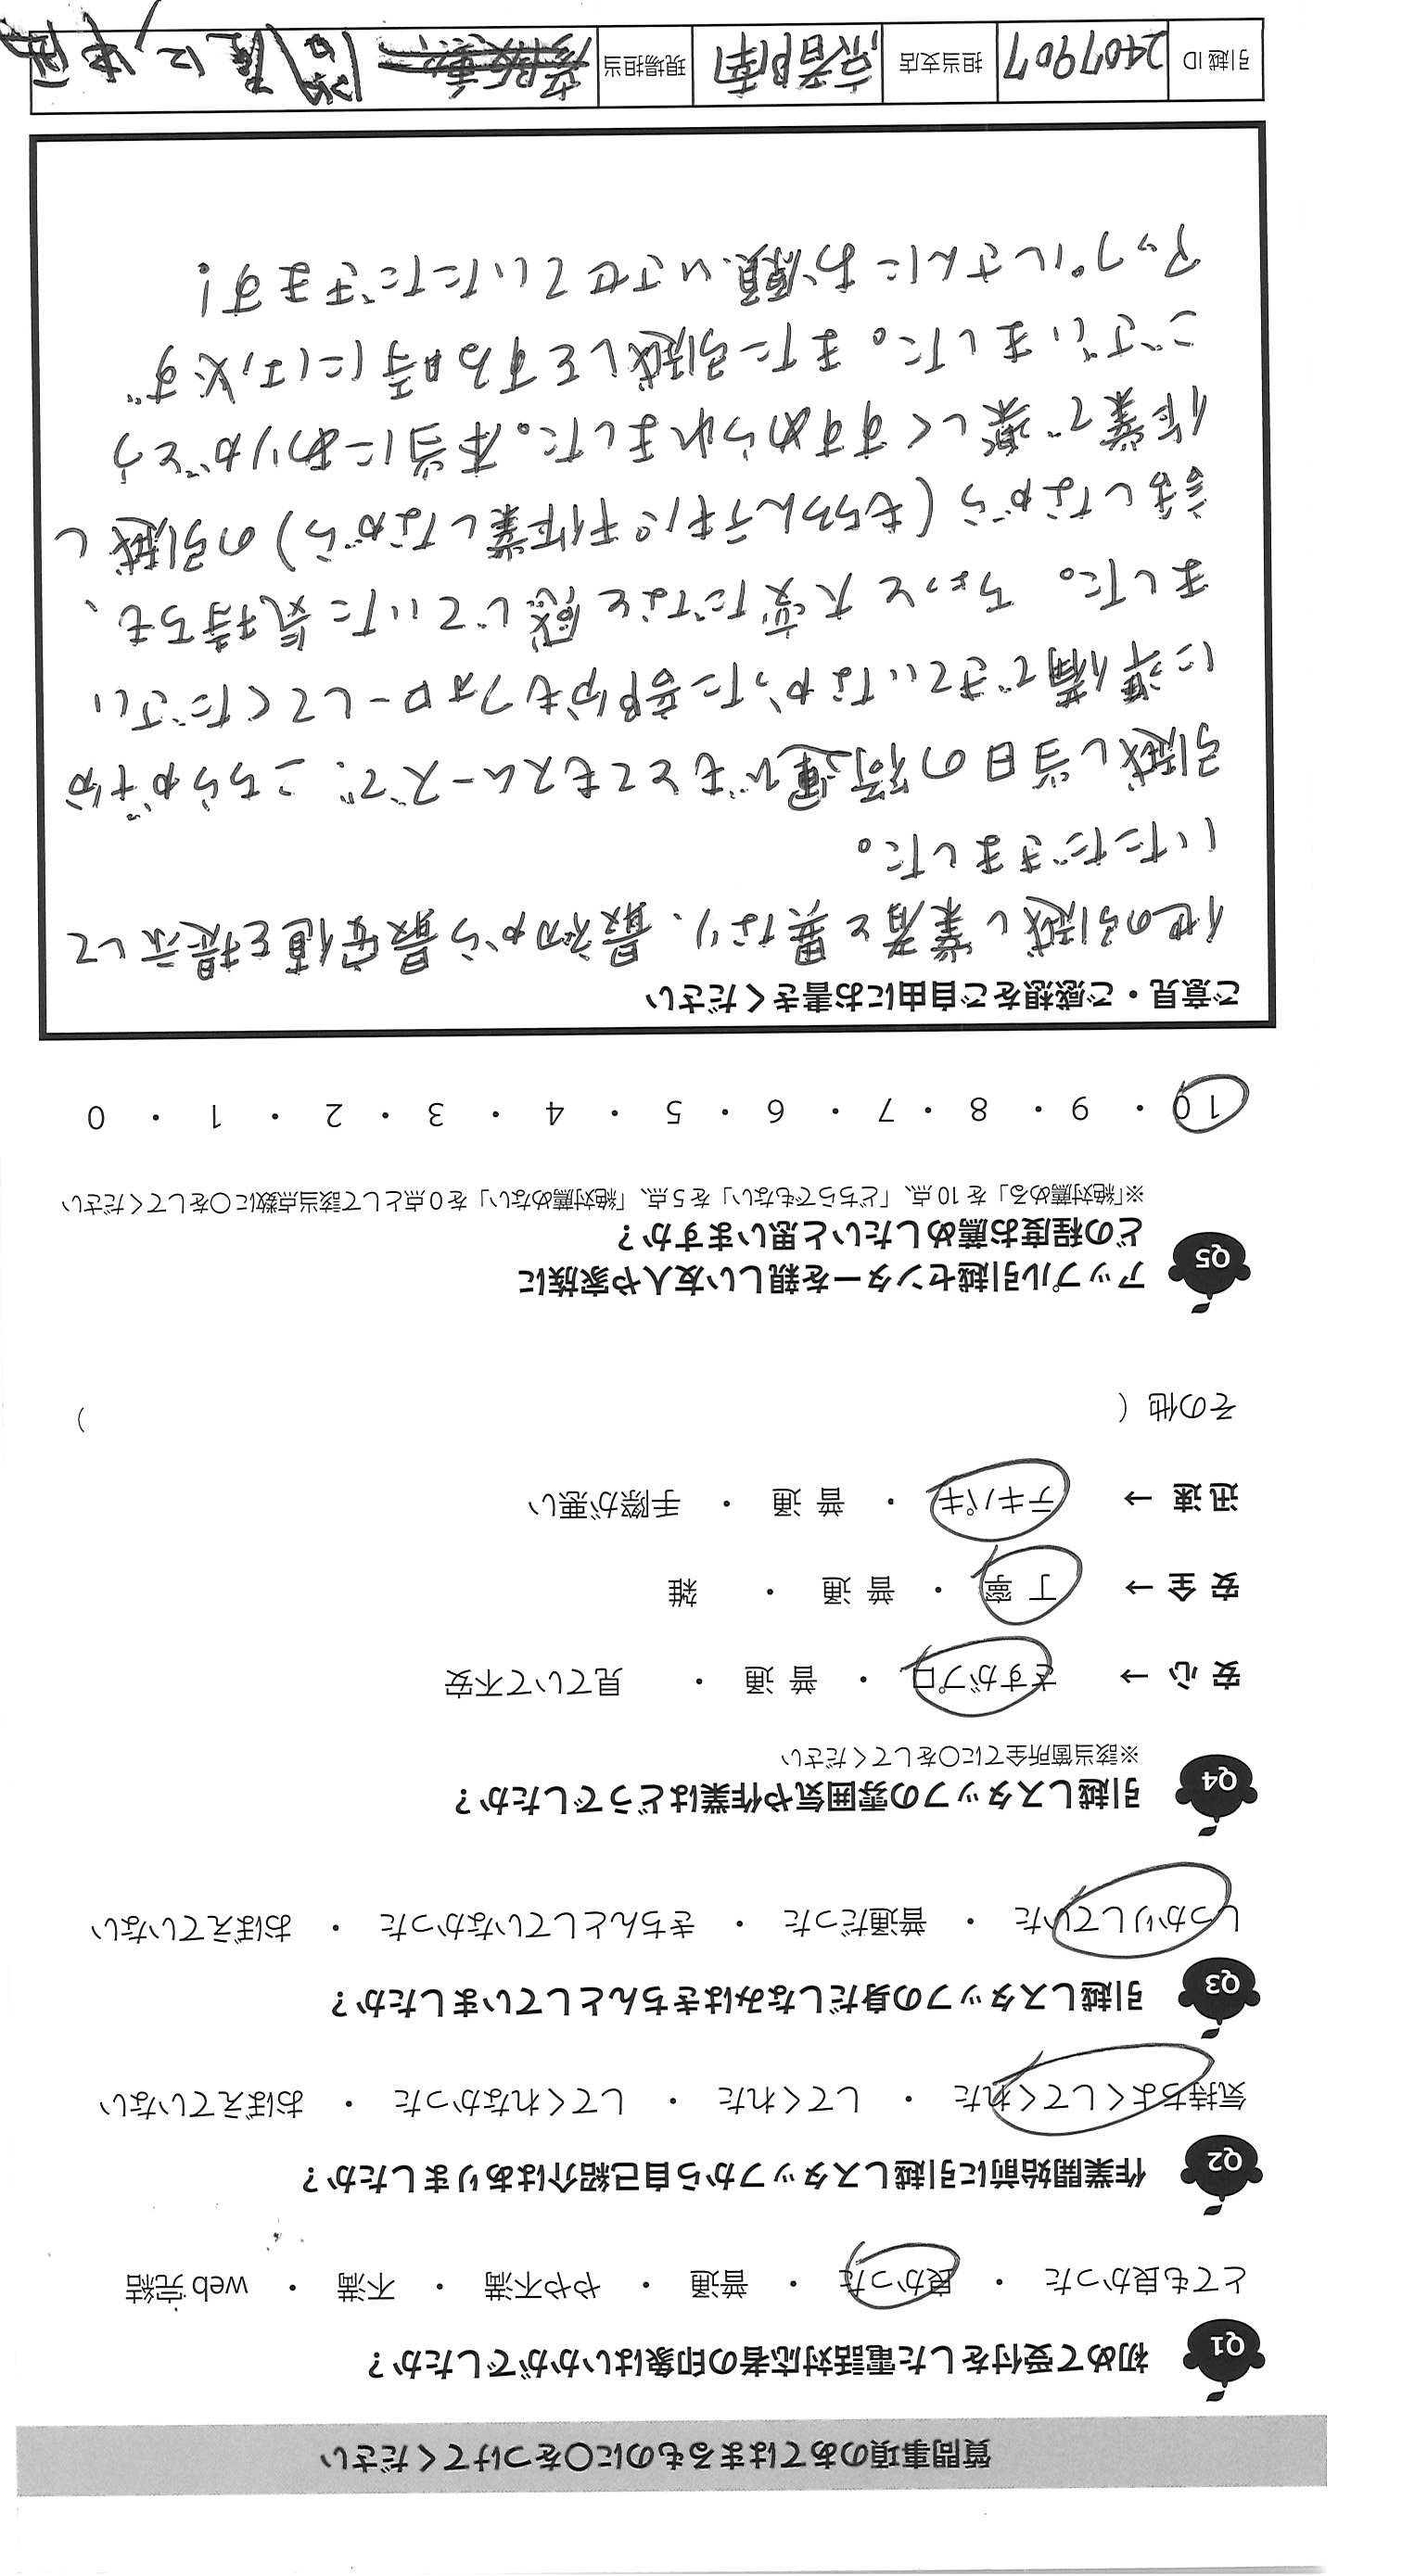 質問事項のあてはまるものに○をつけてください
Q1 初めて受付をした電話対応者の印象はいかがでしたか？
とても良かった ・ 良かった ・ 普通 ・ やや不満 ・ 不満 ・ web完結
Q2 作業開始前に引越しスタッフから自己紹介はありましたか？
気持ちよくしてくれた ・ してくれた ・ してくれなかった ・ おぼえていない
Q3 引越しスタッフの身だしなみはきちんとしていましたか？
しっかりしていた ・ 普通だった ・ きちんとしていなかった ・ おぼえていない
Q4 引越しスタッフの雰囲気や作業はどうでしたか？
※該当箇所全てに○をしてください
安心 → さすがプロ ・ 普通 ・ 見ていて不安
安全 → 丁寧 ・ 普通 ・ 雑
迅速 → テキパキ ・ 普通 ・ 手際が悪い
その他（ ）
Q5 アップル引越センターを親しい友人や家族に
どの程度お薦めしたいと思いますか？
※「絶対薦める」を10点、「どちらでもない」を5点、「絶対薦めない」を0点として該当点数に○をしてください
10 ・ 9 ・ 8 ・ 7 ・ 6 ・ 5 ・ 4 ・ 3 ・ 2 ・ 1 ・ 0
ご意見・ご感想をご自由にお書きください
他の引越し業者と異なり、最初から最安値を提示して
いただきました。
引越し当日の荷運びもとてもスムーズで、こちらが十分
に準備できていなかった部分もフォローしてください
ました。ちょっと大変だなと感じていた気持ちも、
話しながら(もちろんテキパキ作業しながら)の引越し
作業で楽しくすすめられました。本当にありがとう
ございました。また引越しをする時には、必ず
アップルさんにお願いさせていただきます！
引越ID 2407907 担当支店 京都南 現場担当